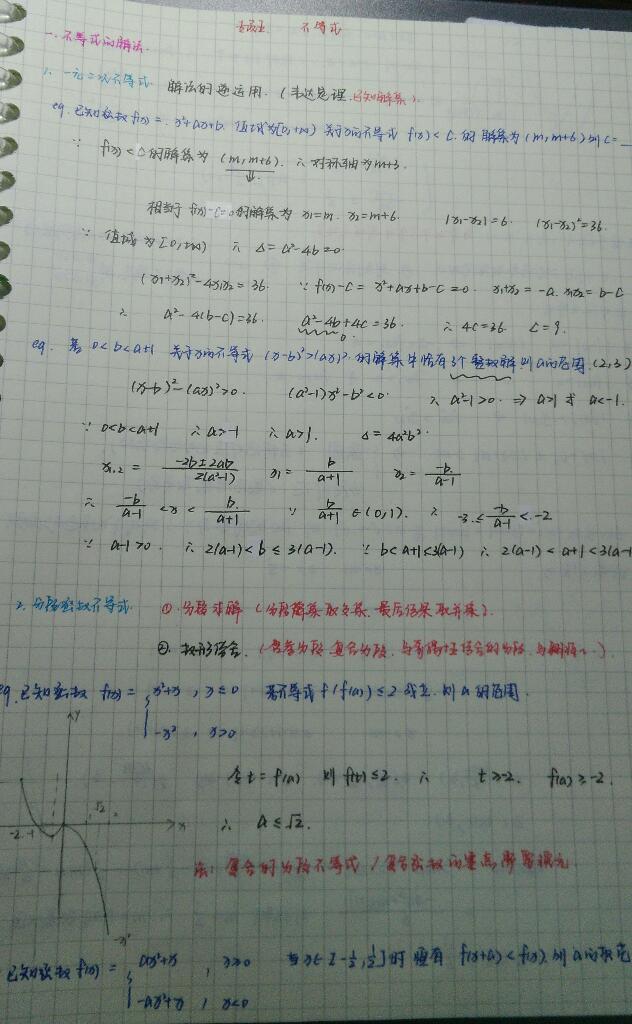 不等式
一、不等式的解法.
1. 一元二次不等式. 解法的逆运用. (韦达定理. 已知解集).
eg. 已知函数 f(x)= x²+ax+b. 值域为[0,+∞) 关于x的不等式 f(x)<c. 的解集为 (m, m+6) 则c=__
∵ f(x)<c 的解集为 (m, m+6). ∴ 对称轴为m+3.
相当于 f(x)-c=0 的解集为 x₁=m. x₂=m+6. |x₁-x₂|=6. (x₁-x₂)²=36.
∵ 值域为[0,+∞) ∴ Δ=a²-4b=0.
(x₁+x₂)²-4x₁x₂=36. ∵ f(x)-c=x²+ax+b-c=0. x₁+x₂=-a. x₁x₂=b-c
∴ a²-4(b-c)=36. a²-4b+4c=36. ∴ 4c=36. c=9.
0
eg. 若 0<b<a+1 关于x的不等式 (x-b)²>(ax)² 的解集中恰有3个整数解则a的范围. (2,3)
(x-b)²-(ax)²>0. (a²-1)x²-b²<0. ∴ a²-1>0. ⇒ a>1 或 a<-1.
∵ 0<b<a+1 ∴ a>-1 ∴ a>1. Δ=4a²b².
x₁,₂ = (-2b±2ab)/(2(a²-1)) x₁ = b/(a+1) x₂ = -b/(a-1)
∴ -b/(a-1) <x< b/(a+1) ∵ b/(a+1) ∈(0,1). ∴ -3≤ -b/(a-1) <-2
∵ a-1>0. ∴ 2(a-1)<b≤3(a-1). ∵ b<a+1<3(a-1) ∴ 2(a-1)<a+1<3(a-1
2. 分段函数不等式. ① 分段求解 (分段解集取交集. 最后结果取并集).
② 数形结合.
eg. 已知函数 f(x) = { x²+x , x≤0 若不等式 f(f(a))≤2 成立. 则a的范围.
-x² , x>0
y
令t=f(a) 则 f(t)≤2. ∴ t≥-2. f(a)≥-2.
√2
-2 -1 x ∴ a≤√2.
法: 复合的分段不等式 / 复合函数的
-x²
已知函数 f(x) = { ax²+x , x≥0 当x∈[-½,½]时恒有 f(x+a)<f(x). 则a的取范
-ax²+x , x<0